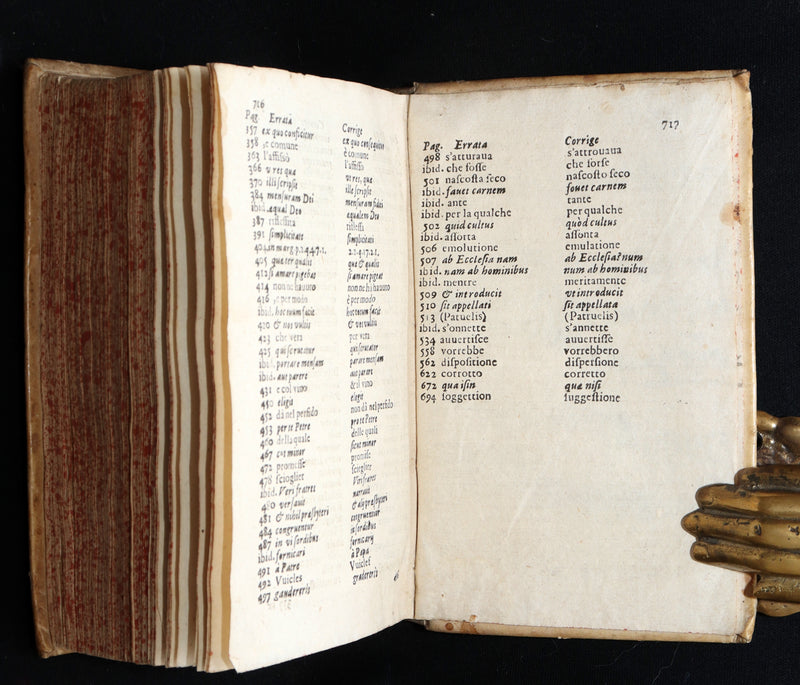 716
Pag. Errata Corrige
357 ex quo conficitur ex quo consequitur
358 e comune è comune
363 l'affissò l'affisso
366 vres que vt res, que
370 illi scripse ille scripse
384 mensuram Dei mensuram fidei
ibid. equal Deo equalem Deo
387
391 simplicitate simplicitati
404 in marg. p.1.4.47.1. 2.1.q.17.21.
405 que ter qualis que & qualis
412 si amare pigebas si amare pigeat
414 non ne havuto non ne hi havuto
416 e per modo è per modo
ibid. hoc tuum facis hoc tecum facis
420 & nos vultis & vet vultis
423 che vera per vera
425 qui scrutatur qui scrutator
ibid. portare mensam parare mensam
ibid. aut parere aut parare
431 e col vino & il vino
450 eligii eligis
452 dà nel perfido non dà nel perfido
453 per te Petre pro te Petre
460 della quale delle quali
467 cot minar sicut minar
472 promesse promise
478 scioglier scioglite
ibid. Veri fratres Veri frares
480 versauit
481 & nihil præsbyteri & alij præsbyteri
484 congruentur congruenter
487 in vi sordibus in sordibus
ibid. fornicari fornicarij
491 a Patre à Papa
492 Vuicles Vuiclef
497 gaudereris gradereris
717
Pag. Errata Corrige
498 s'atturaua s'attrouaua
ibid. che fosse che forse
501 nascosta seco nascosto seco
ibid. fauet carnem fouet carnem
ibid. ante tante
ibid. per la qualche per qualche
502 quid cultus quòd cultus
ibid. assorta assonta
506 emolutione emulatione
507 ab Ecclesia nam ab Ecclesia? num
ibid. nam ab hominibus num ab hominibus
ibid. mentre meritamente
509 & introducit vt introducit
510 sit appellati sit appellata
513 (Patuelis) (Patruelis)
ibid. s'onnette s'annette
534 auuertisce auuertisse
558 vorrebbe vorrebbero
562 dispositione dispersione
622 corrotto corretto
672 qua isin qua nisi
694 soggettion suggestione